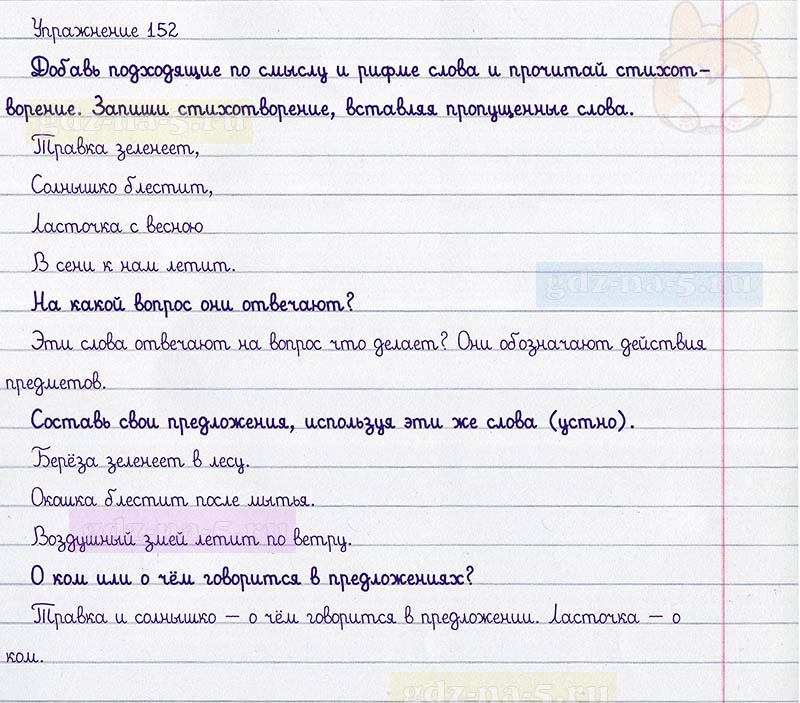 Упражнение 152
Добавь подходящие по смыслу и рифме слова и прочитай стихот-
ворение. Запиши стихотворение, вставляя пропущенные слова.
gdz-na-5.ru
Травка зеленеет,
Солнышко блестит,
Ласточка с весною
В сени к нам летит.
gdz-na-5.ru
На какой вопрос они отвечают?
Эти слова отвечают на вопрос что делает? Они обозначают действия
предметов.
Составь свои предложения, используя эти же слова (устно).
Берёза зеленеет в лесу.
Окашка блестит после мытья.
gdz-na-5.ru
Воздушный змей летит по ветру.
О ком или о чём говорится в предложениях?
Травка и солнышко – о чём говорится в предложении. Ласточка – о
ком.
gdz-na-5.ru